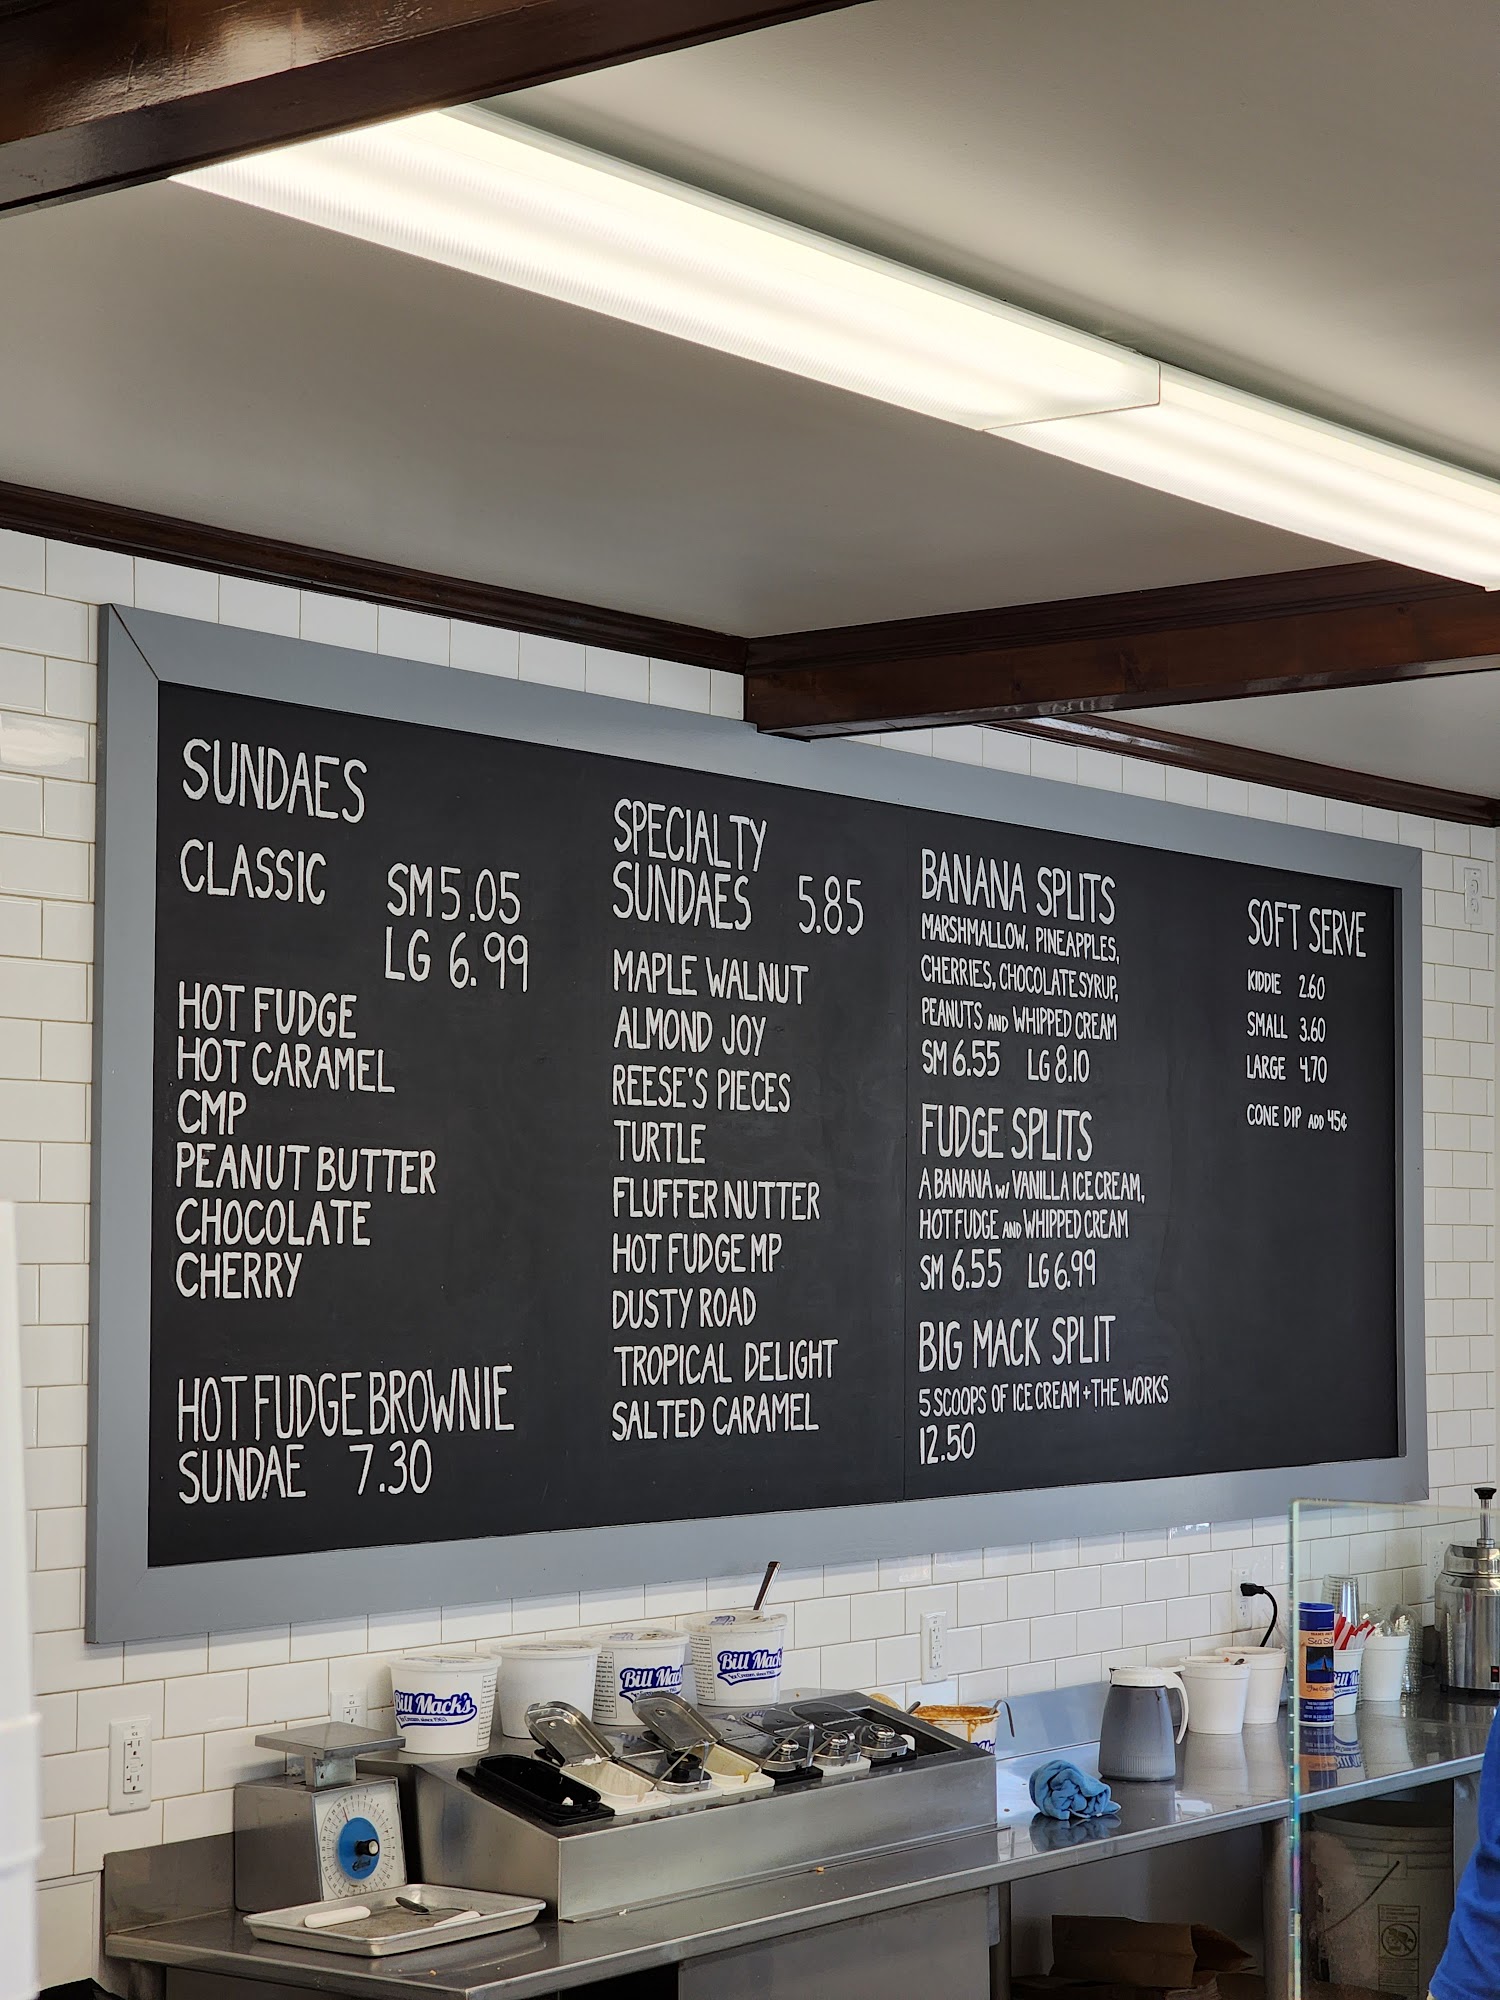 SUNDAES
CLASSIC SM 5.05
LG 6.99
HOT FUDGE
HOT CARAMEL
CMP
PEANUT BUTTER
CHOCOLATE
CHERRY
HOT FUDGE BROWNIE
SUNDAE 7.30
SPECIALTY
SUNDAES 5.85
MAPLE WALNUT
ALMOND JOY
REESE'S PIECES
TURTLE
FLUFFER NUTTER
HOT FUDGE MP
DUSTY ROAD
TROPICAL DELIGHT
SALTED CARAMEL
BANANA SPLITS
MARSHMALLOW, PINEAPPLES,
CHERRIES, CHOCOLATE SYRUP,
PEANUTS AND WHIPPED CREAM
SM 6.55 LG 8.10
FUDGE SPLITS
A BANANA W/ VANILLA ICE CREAM,
HOT FUDGE AND WHIPPED CREAM
SM 6.55 LG 6.99
BIG MACK SPLIT
5 SCOOPS OF ICE CREAM + THE WORKS
12.50
SOFT SERVE
KIDDIE 2.60
SMALL 3.60
LARGE 4.70
CONE DIP ADD 45¢
Bill Mack's
Bill Mack
Bill Mack
Sea Salt
Bill M